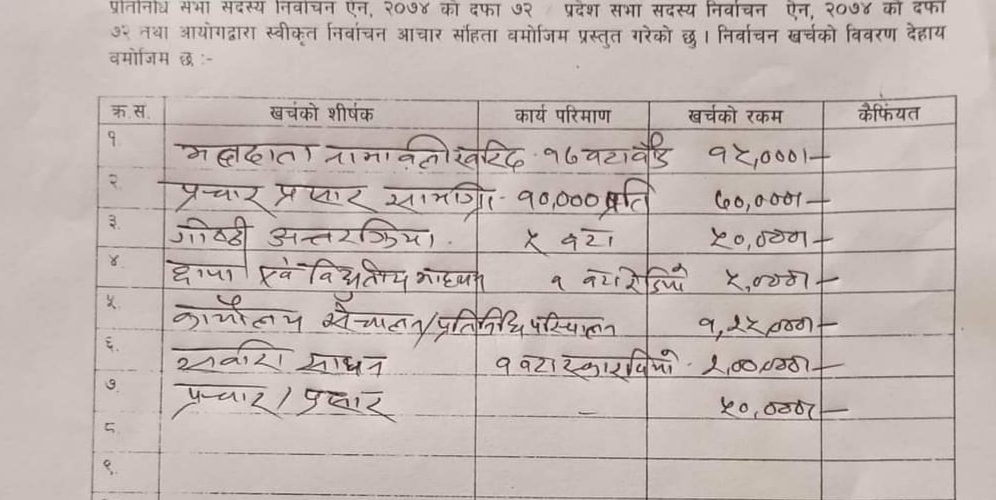 प्रतिनिधि सभा सदस्य निर्वाचन ऐन, २०७४ को दफा ७२ प्रदेश सभा सदस्य निर्वाचन ऐन, २०७४ को दफा
७२ तथा आयोगद्वारा स्वीकृत निर्वाचन आचार संहिता बमोजिम प्रस्तुत गरेको छु । निर्वाचन खर्चको विवरण देहाय
बमोजिम छ :-
क्र.स. खर्चको शीर्षक कार्य परिमाण खर्चको रकम कैफियत
१ मतदाता नामावली खरिद १७ वटा १५,०००।-
२. प्रचार प्रसार सामग्री - १०,००० प्रति ७०,०००।-
३. गोष्ठी अन्तरक्रिया . ५ वटा ५०,०००।-
४ छापा एवं विद्युतीय माध्यम १ वटा रेडियो ५,०००।-
५. कार्यालय संचालन/प्रतिनिधि परिचालन १,२५,०००।-
६. सवारी साधन १ वटा स्कारपियो २,००,०००।-
७ प्रचार / प्रसार - ५०,०००।-
८.
९.